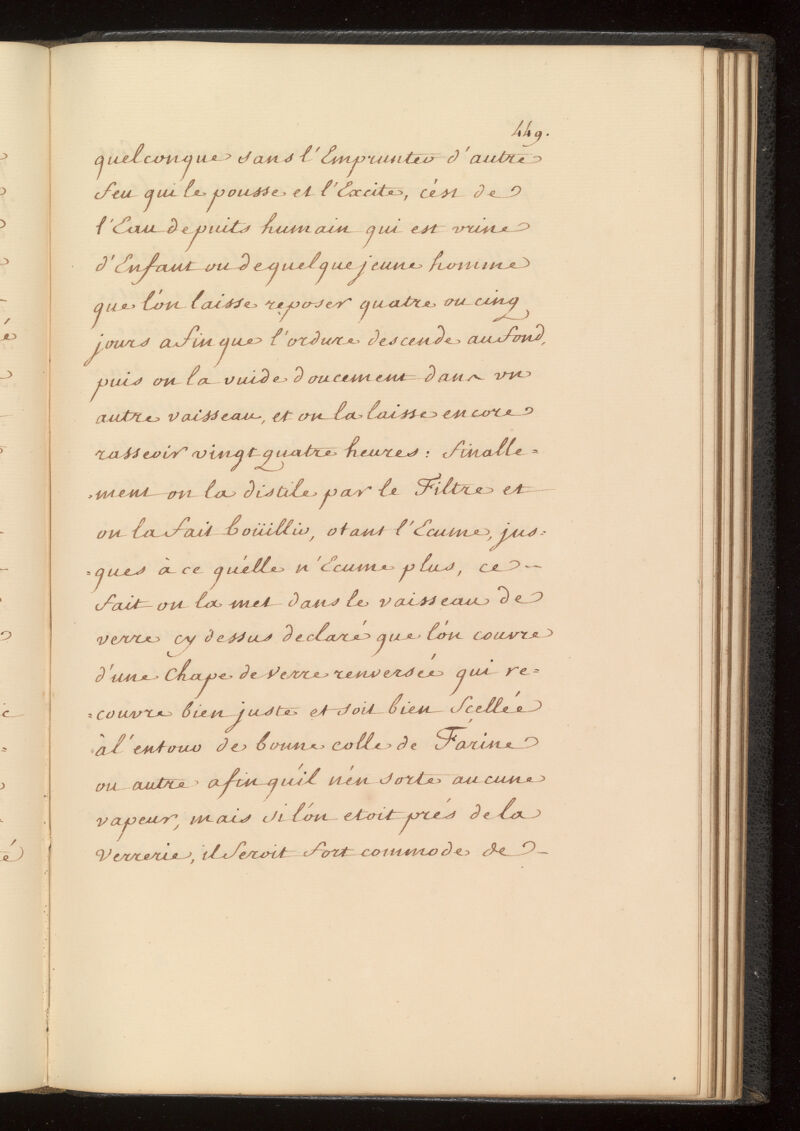 449.
quelconque sans l'Emprunter d'autre
feu qui le pousse et l'Excite, c'ést de
l'Eau de puits humain qui est vrine
d'Enfant ou de quelque jeune homme
que l'on laisse reposer quatre ou cinq
jours afin que l'ordure descende au fond,
puis on la vuide doucement dans vn
autre vaisseau, et on la laisse encore
rasseoir vingt quatre heures: finalle=
=ment on la distile par le Filtre et
on la fait boüillir, otant l'Ecume, jus=
=ques à ce qu'elle n'Ecume plus, ce
fait on la met dans le vaisseau de
verre cy dessus declaré que l'on couvre
d'une Chape de verre renversée qui re=
=couvre bien juste et soit bien Scellée
à l'entour de bonne colle de Farine
ou autre afin qu'il n'en sorte aucune
vapeur, mais si l'on etoit prés de la
Verrerie, il seroit fort commode de